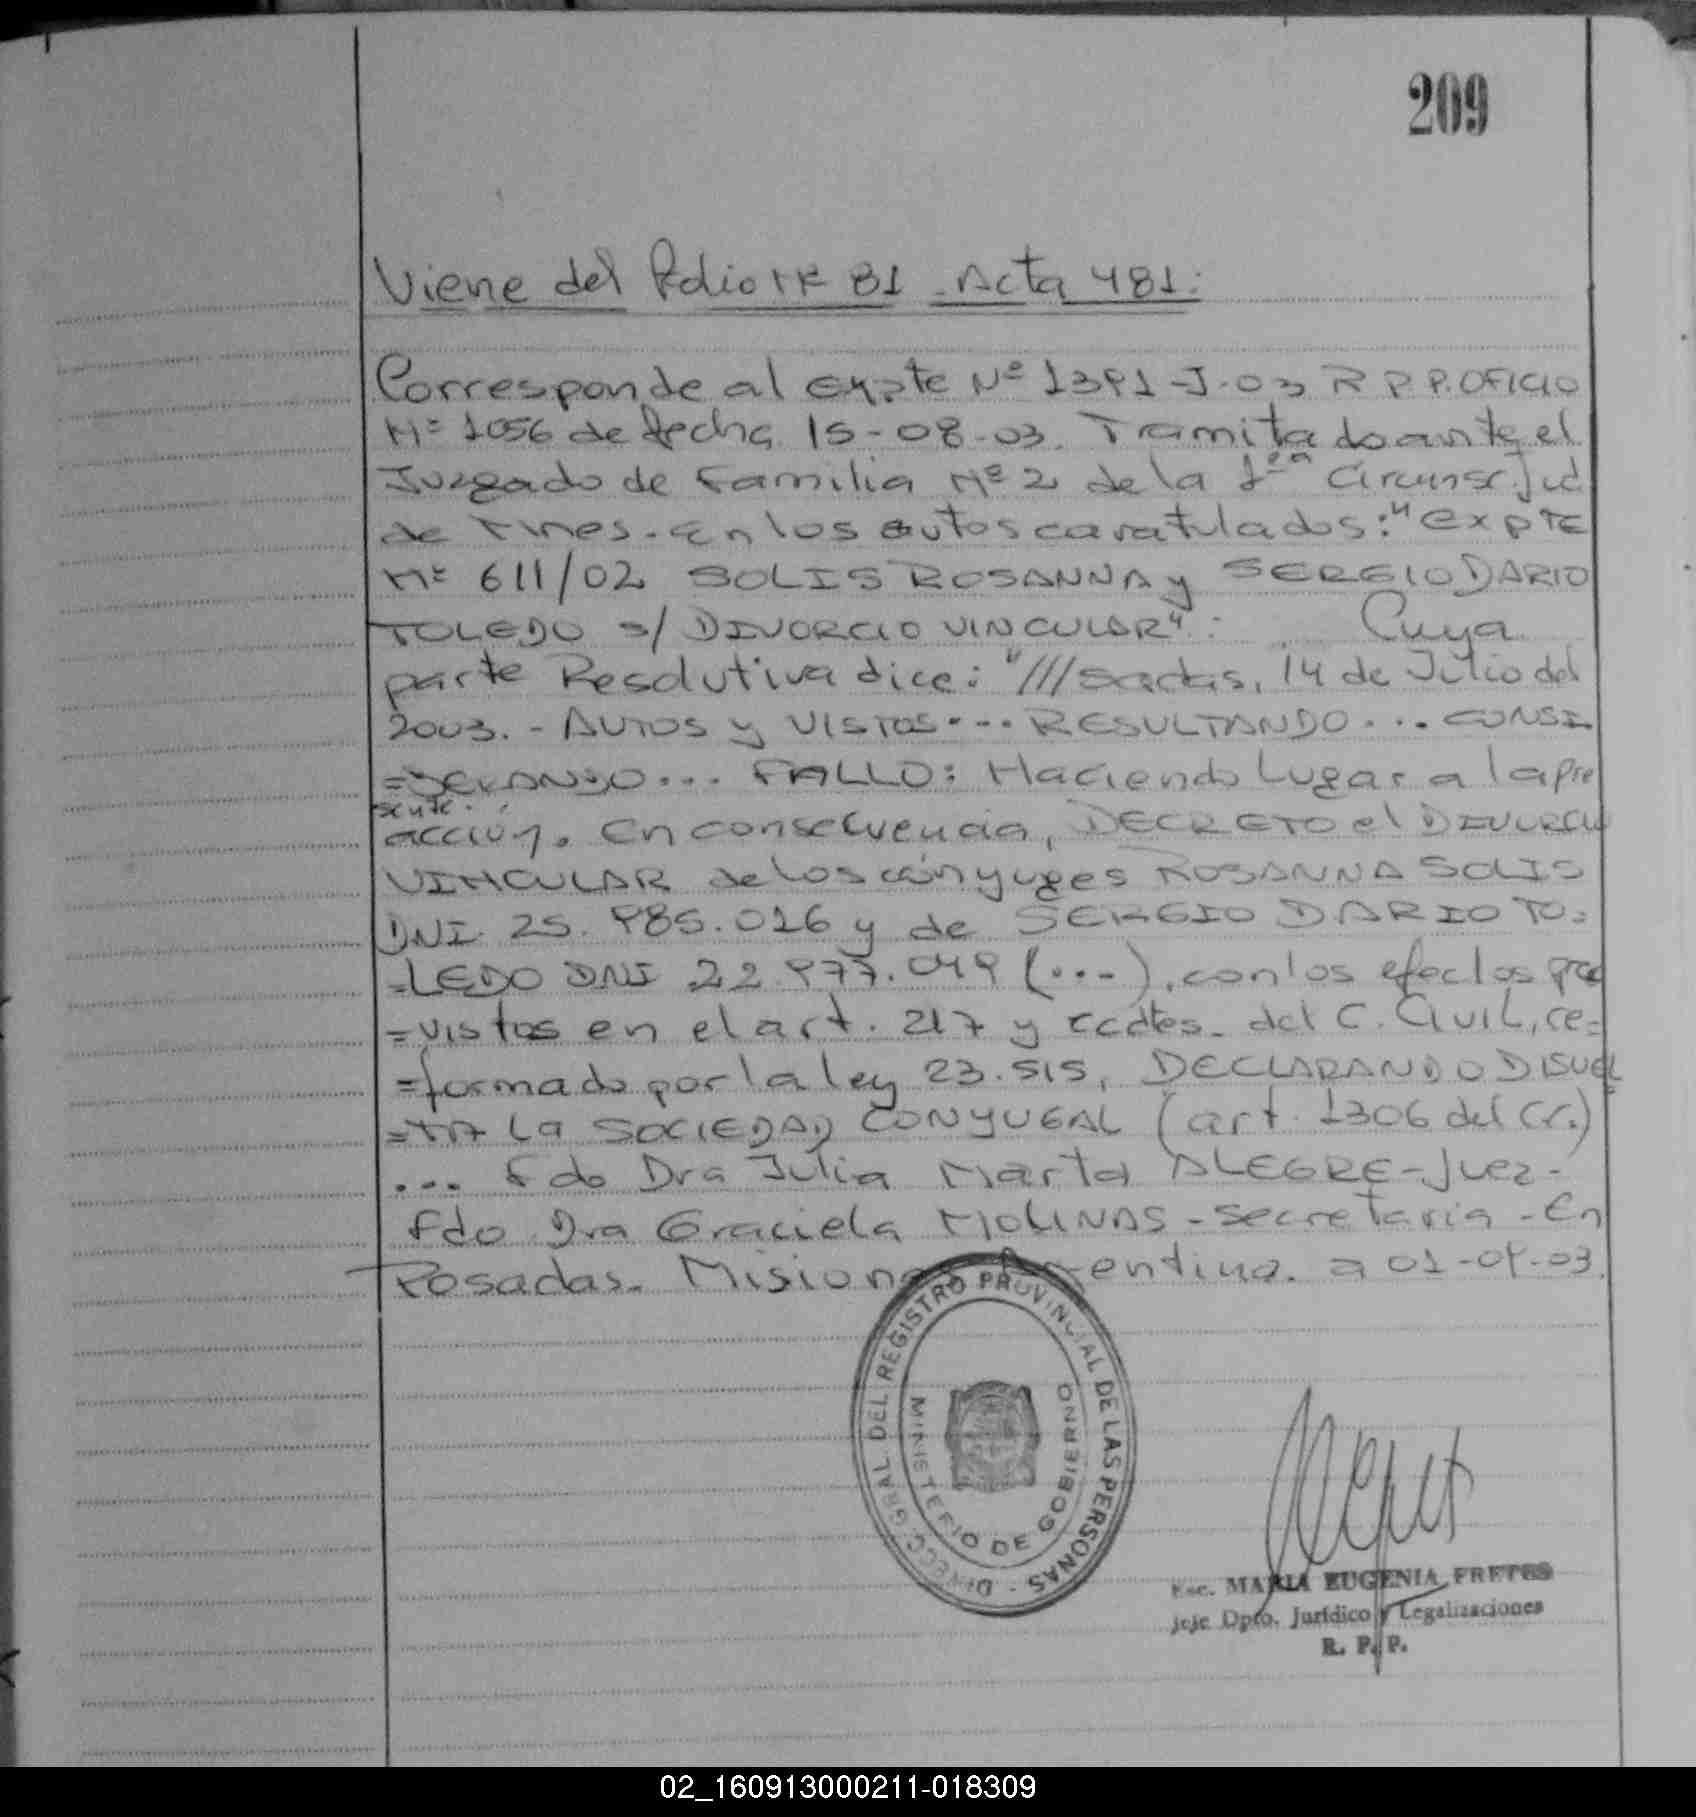 209
Viene del Folio Nº 81 - Acta 481:
Corresponde al Expte Nº 1391-J-03 R P P. OFICIO
Nº 1056 de fecha 15-08-03. Tramitado ante el
Juzgado de Familia Nº 2 de la 1era Circunsc. Jud
de Mnes. - En los autos caratulados: "EXPTE
Nº 611/02 SOLIS ROSANNA y SERGIO DARIO
TOLEDO S/ DIVORCIO VINCULAR": Cuya
parte Resolutiva dice: "///sadas, 14 de Julio del
2003. - AUTOS y VISTOS... RESULTANDO... CONSI
=DERANDO... FALLO: Haciendo Lugar a la pre
sente
acción. En consecuencia, DECRETO el DIVORCIO
VINCULAR de los cónyuges ROSANNA SOLIS
DNI. 25.985.016 y de SERGIO DARIO TO=
=LEDO DNI 22.977.049 (...), con los efectos pre
=vistos en el art. 217 y ccdtes. del C. Civil, re=
=formado por la ley 23.515, DECLARANDO DISUEL
=TA La SOCIEDAD CONYUGAL (art. 1306 del CC.)
... Fdo Dra Julia Marta ALEGRE - Juez -
Fdo Dra Graciela MOLINAS - Secretaria - En
Posadas - Misiones Argentina. a 01-09-03.
DIRECC. GRAL. DEL REGISTRO PROVINCIAL DE LAS PERSONAS -
MINISTERIO DE GOBIERNO
Esc. MARIA EUGENIA FRETES
Jefe Dpto. Jurídico y Legalizaciones
R. P. P.
02_160913000211-018309